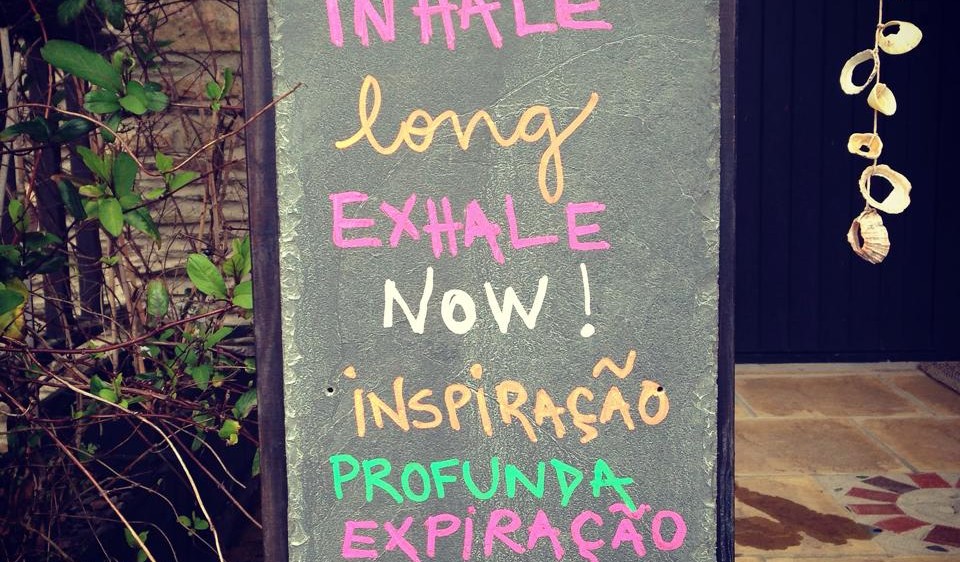 INHALE
long
EXHALE
NOW!
INSPIRAÇÃO
PROFUNDA
EXPIRAÇÃO